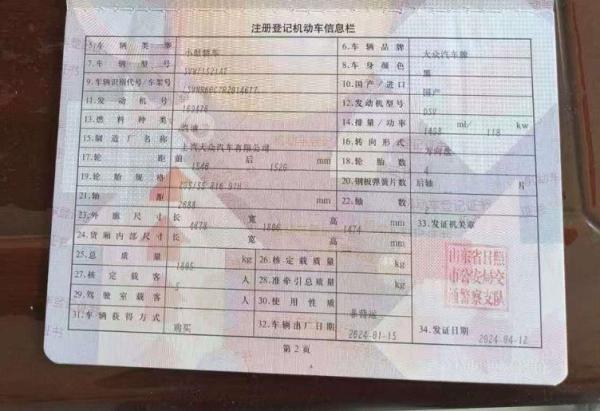 注册登记机动车信息栏
5.车辆类型 小型轿车 6.车辆品牌 大众汽车牌
7.车辆型号 8.车身颜色 黑
9.车辆识别代号/车架号 10.国产/进口 国产
11.发动机号 12.发动机型号 DSV
13.燃料种类 汽油 14.排量/功率 ml/ 118 kw
15.制造厂名称 上汽大众汽车有限公司 16.转向形式 方向盘
17.轮距 前 1546 后 mm 18.轮胎数 4
19.轮胎规格 20.钢板弹簧片数 后轴 片
21.轴距 2688 mm 22.轴数
23.外廓尺寸 长 4678 宽 1806 高 1474 mm 33.发证机关章
24.货厢内部尺寸 长 宽 高 mm
山东省日照市公安局交通警察支队
25.总质量 kg 26.核定载质量 kg
27.核定载客 5 人 28.准牵引总质量 kg
29.驾驶室载客 人 30.使用性质 非营运
31.车辆获得方式 购买 32.车辆出厂日期 2024-01-15 34.发证日期 2024-04-12
第2页